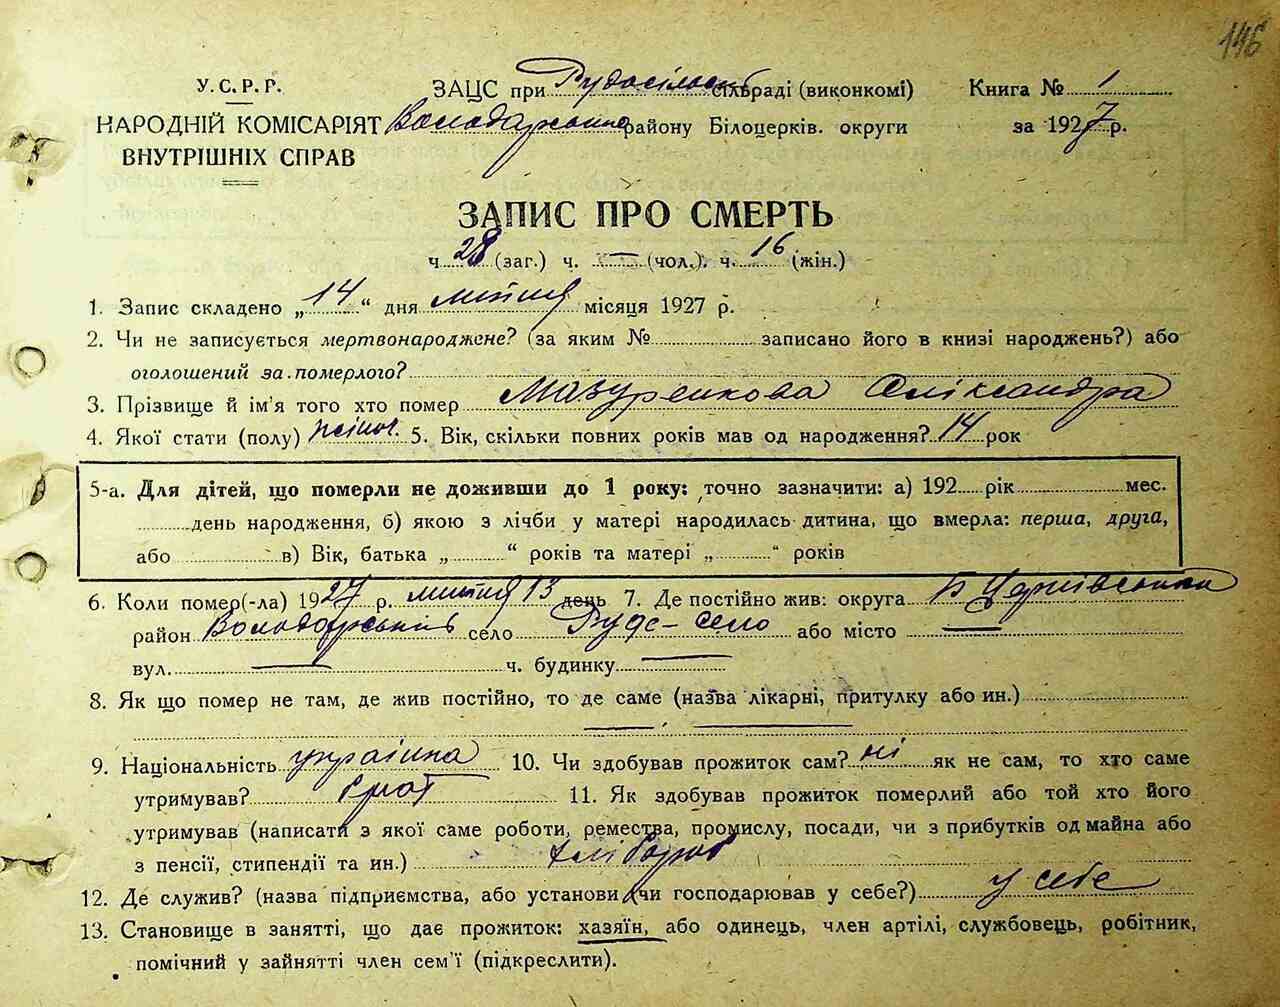 146
У.С.Р.Р.
НАРОДНІЙ КОМІСАРІЯТ
ВНУТРІШНІХ СПРАВ
ЗАЦС при Рудосільській сільраді (виконкомі)
Володарського району Білоцерків. округи
Книга № 1
за 1927 р.
ЗАПИС ПРО СМЕРТЬ
ч. 28 (заг.) ч. — (чол.). ч. 16 (жін.)
1. Запис складено „14“ дня липня місяця 1927 р.
2. Чи не записується мертвонароджене? (за яким № записано його в книзі народжень?) або
оголошений за померлого?
3. Прізвище й ім'я того хто помер Мазуренкова Олександра
4. Якої стати (полу) жіноч. 5. Вік, скільки повних років мав од народження? 14 рок
5-а. Для дітей, що померли не доживши до 1 року: точно зазначити: а) 192 рік мес.
день народження, б) якою з лічби у матері народилась дитина, що вмерла: перша, друга,
або в) Вік, батька „ “ років та матері „ “ років
6. Коли помер(-ла) 1927 р. липня 13 день 7. Де постійно жив: округа Б Церківська
район Володарський село Рудо-село або місто —
вул. — ч. будинку —
8. Як що помер не там, де жив постійно, то де саме (назва лікарні, притулку або ин.)
— —
9. Національність українка 10. Чи здобував прожиток сам? ні як не сам, то хто саме
утримував? брат 11. Як здобував прожиток померлий або той хто його
утримував (написати з якої саме роботи, ремества, промислу, посади, чи з прибутків од майна або
з пенсії, стипендії та ин.) хлібороб
12. Де служив? (назва підприємства, або установи чи господарював у себе?) у себе
13. Становище в занятті, що дає прожиток: хазяїн, або одинець, член артілі, службовець, робітник,
помічний у зайнятті член сем'ї (підкреслити).